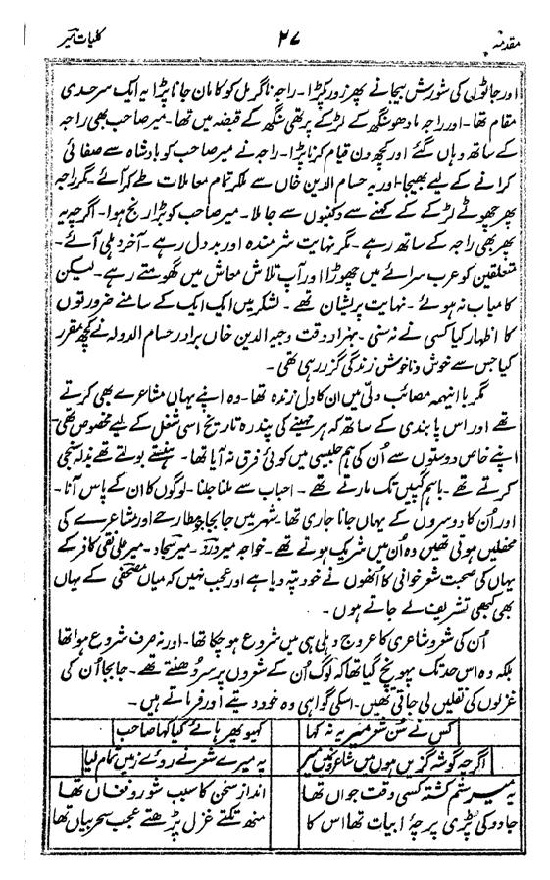 مقدمہ ۲۷ کلیات میر
اور جاٹولی کی شورش بیجانے پھر زور پکڑا۔ راجہ ناگر مل کو کاماں جانا پڑا یہ ایک سرحدی
مقام تھا۔ اور راجہ مادھو سنگھ کے لڑکے پرتھی سنگھ کے قبضہ میں تھا۔ میر صاحب بھی راجہ
کے ساتھ وہاں گئے اور کچھ دن قیام کرنا پڑا۔ راجہ نے میر صاحب کو بادشاہ سے صفائی
کرانے کے لیے بھیجا۔ اور یہ حسام الدین خاں سے ملکر تمام معاملات طے کر آئے۔ مگر راجہ
پھر چھوٹے لڑکے کے کہنے سے دکنیوں سے جا ملا۔ میر صاحب کو بڑا رنج ہوا۔ اگرچہ یہ
پھر بھی راجہ کے ساتھ رہے۔ مگر نہایت شرمندہ اور بد دل رہے۔ آخر دہلی آئے۔
متعلقین کو عرب سرائے میں چھوڑا اور آپ تلاش معاش میں گھومتے رہے۔ لیکن
کامیاب نہ ہوئے۔ نہایت پریشان تھے۔ لشکر میں ایک ایک کے سامنے ضرورتوں
کا اظہار کیا کسی نے نہ سنی۔ بہزار دقت وجیہ الدین خاں برادر حسام الدولہ نے کچھ مقرر
کیا جس سے خوش و ناخوش زندگی گزر رہی تھی۔
مگر با اینہمہ مصائب دلّی میں ان کا دل زندہ تھا۔ وہ اپنے یہاں مشاعرے بھی کرتے
تھے اور اس پابندی کے ساتھ کہ ہر مہینے کی پندرہ تاریخ اسی شغل کے لیے مخصوص تھی۔
اپنے خاص دوستوں سے اُن کی ہم جلیسی میں کوئی فرق نہ آیا تھا۔ ہنستے بولتے تھے بذلہ سنجی
کرتے تھے۔ باہم گپیں تک مارتے تھے۔ احباب سے ملنا جلنا۔ لوگوں کا ان کے پاس آنا۔
اور اُن کا دوسروں کے یہاں جانا جاری تھا۔ شہر میں جابجا چپطارحے اور مشاعرے کی
محفلیں ہوتی تھیں وہ اُن میں شریک ہوتے تھے۔ خواجہ میر درد۔ میر سجاد۔ میر علی نقی کافر کے
یہاں کی صحبت شعر خوانی کا اُنھوں نے خود پتہ دیا ہے اور عجب نہیں کہ میاں مصحفی کے یہاں
بھی کبھی تشریف لے جاتے ہوں۔
اُن کی شعر و شاعری کا عروج دہلی ہی میں شروع ہو چکا تھا۔ اور نہ صرف شروع ہوا تھا
بلکہ وہ اس حد تک پہونچ گیا تھا کہ لوگ اُن کے شعروں پر سر دُھنتے تھے۔ جابجا اُن کی
غزلوں کی نقلیں لی جاتی تھیں۔ اسکی گواہی وہ خود دیتے اور فرماتے ہیں۔
کس نے سُن شعر میر یہ نہ کہا کہیو پھر ہائے کیا کہا صاحب
اگرچہ گوشہ گزیں ہوں میں شاعروں میں میر پہ میرے شعر نے روئے زمیں تمام لیا
یہ میر ستم کشتہ کسی وقت جواں تھا انداز سخن کا سبب شور و فغاں تھا
جادو کی پُڑی پرچۂ ابیات تھا اس کا منھ تکتے غزل پڑھتے عجب سحر بیاں تھا